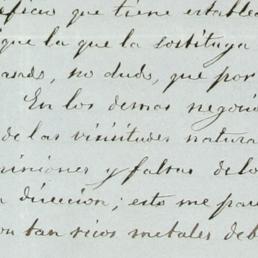 eficio que tiene estable
que la que la sostituya
asado, no dudo, que por
En los demas negoci
de las visisitudes natura
iniones y faltas delo
n direccion; esto me par
on tan ricos metales deb